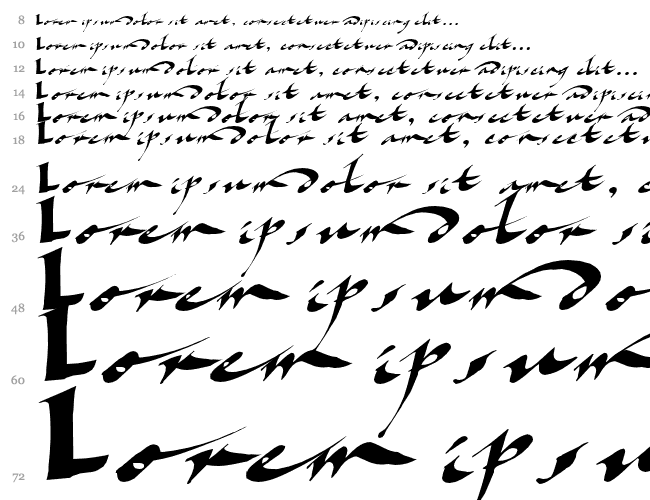 8 Lorem ipsum dolor sit amet, consectetuer adipiscing elit...
10 Lorem ipsum dolor sit amet, consectetuer adipiscing elit...
12 Lorem ipsum dolor sit amet, consectetuer adipiscing elit...
14 Lorem ipsum dolor sit amet, consectetuer adipiscin
16 Lorem ipsum dolor sit amet, consectetuer ad
18 Lorem ipsum dolor sit amet, consectetu
24 Lorem ipsum dolor sit amet, c
36 Lorem ipsum dolor si
48 Lorem ipsum do
60 Lorem ipsum
72 Lorem ipsu